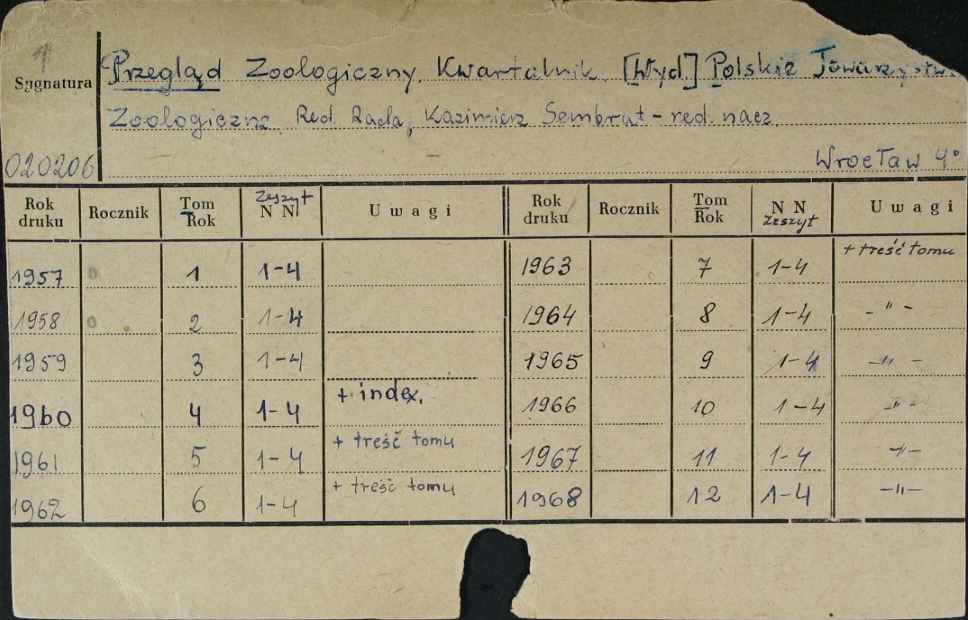 4
Sygnatura
Przegląd Zoologiczny. Kwartalnik. [Wyd] Polskie Towarzystwo
Zoologiczne Red. Rada, Kazimierz Sembrat - red. nacz
020206
Wrocław 4°
Rok druku Rocznik Tom Rok Zeszyt N N U w a g i Rok druku Rocznik Tom Rok N N Zeszyt U w a g i
1957 0 1 1-4 1963 7 1-4 + treść tomu
1958 0 2 1-4 1964 8 1-4 - " -
1959 3 1-4 1965 9 1-4 - " -
1960 4 1-4 + index. 1966 10 1-4 - " -
1961 5 1-4 + treść tomu 1967 11 1-4 - " -
1962 6 1-4 + treść tomu 1968 12 1-4 - " -